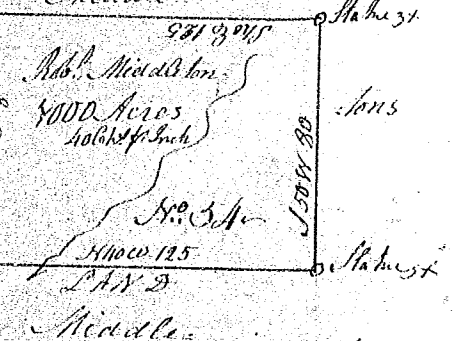 Stake 3x
S40E 125
Robt. Middleton
1000 Acres
40 Chs. pr. Inch
S50W 80
No. 34
N40W 125
Stake 5x
LAND
Middle